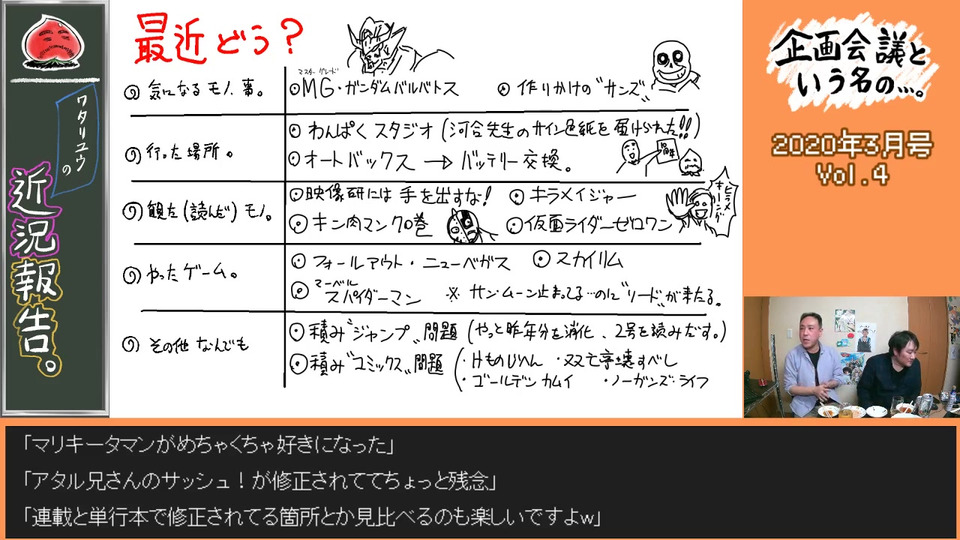 ワタリユウの
近況報告。
最近どう？
気になるモノ、事。
マスターグレード
MG・ガンダムバルバトス
作りかけの"サンズ"
行った場所。
わんぱくスタジオ(河合先生のサイン色紙を届けられた!!)
オートバックス→バッテリー交換。
観た(読んだ)モノ。
映像研には手を出すな!
キラメイジャー
キン肉マン70巻
仮面ライダーゼロワン
やったゲーム。
フォールアウト・ニューベガス
スカイリム
マーベル
スパイダーマン
※サン・ムーン止まってる…のに"リード"が来たる。
その他なんでも
積み"ジャンプ"問題(やっと昨年分を消化、2号を読みだす。)
積み"コミックス"問題
(・けものじへん ・双亡亭壊すべし
・ゴールデンカムイ ・ノーガンズ・ライフ
企画会議と
いう名の…。
2020年3月号
Vol.4
「マリキータマンがめちゃくちゃ好きになった」
「アタル兄さんのサッシュ！が修正されててちょっと残念」
「連載と単行本で修正されてる箇所とか見比べるのも楽しいですよw」